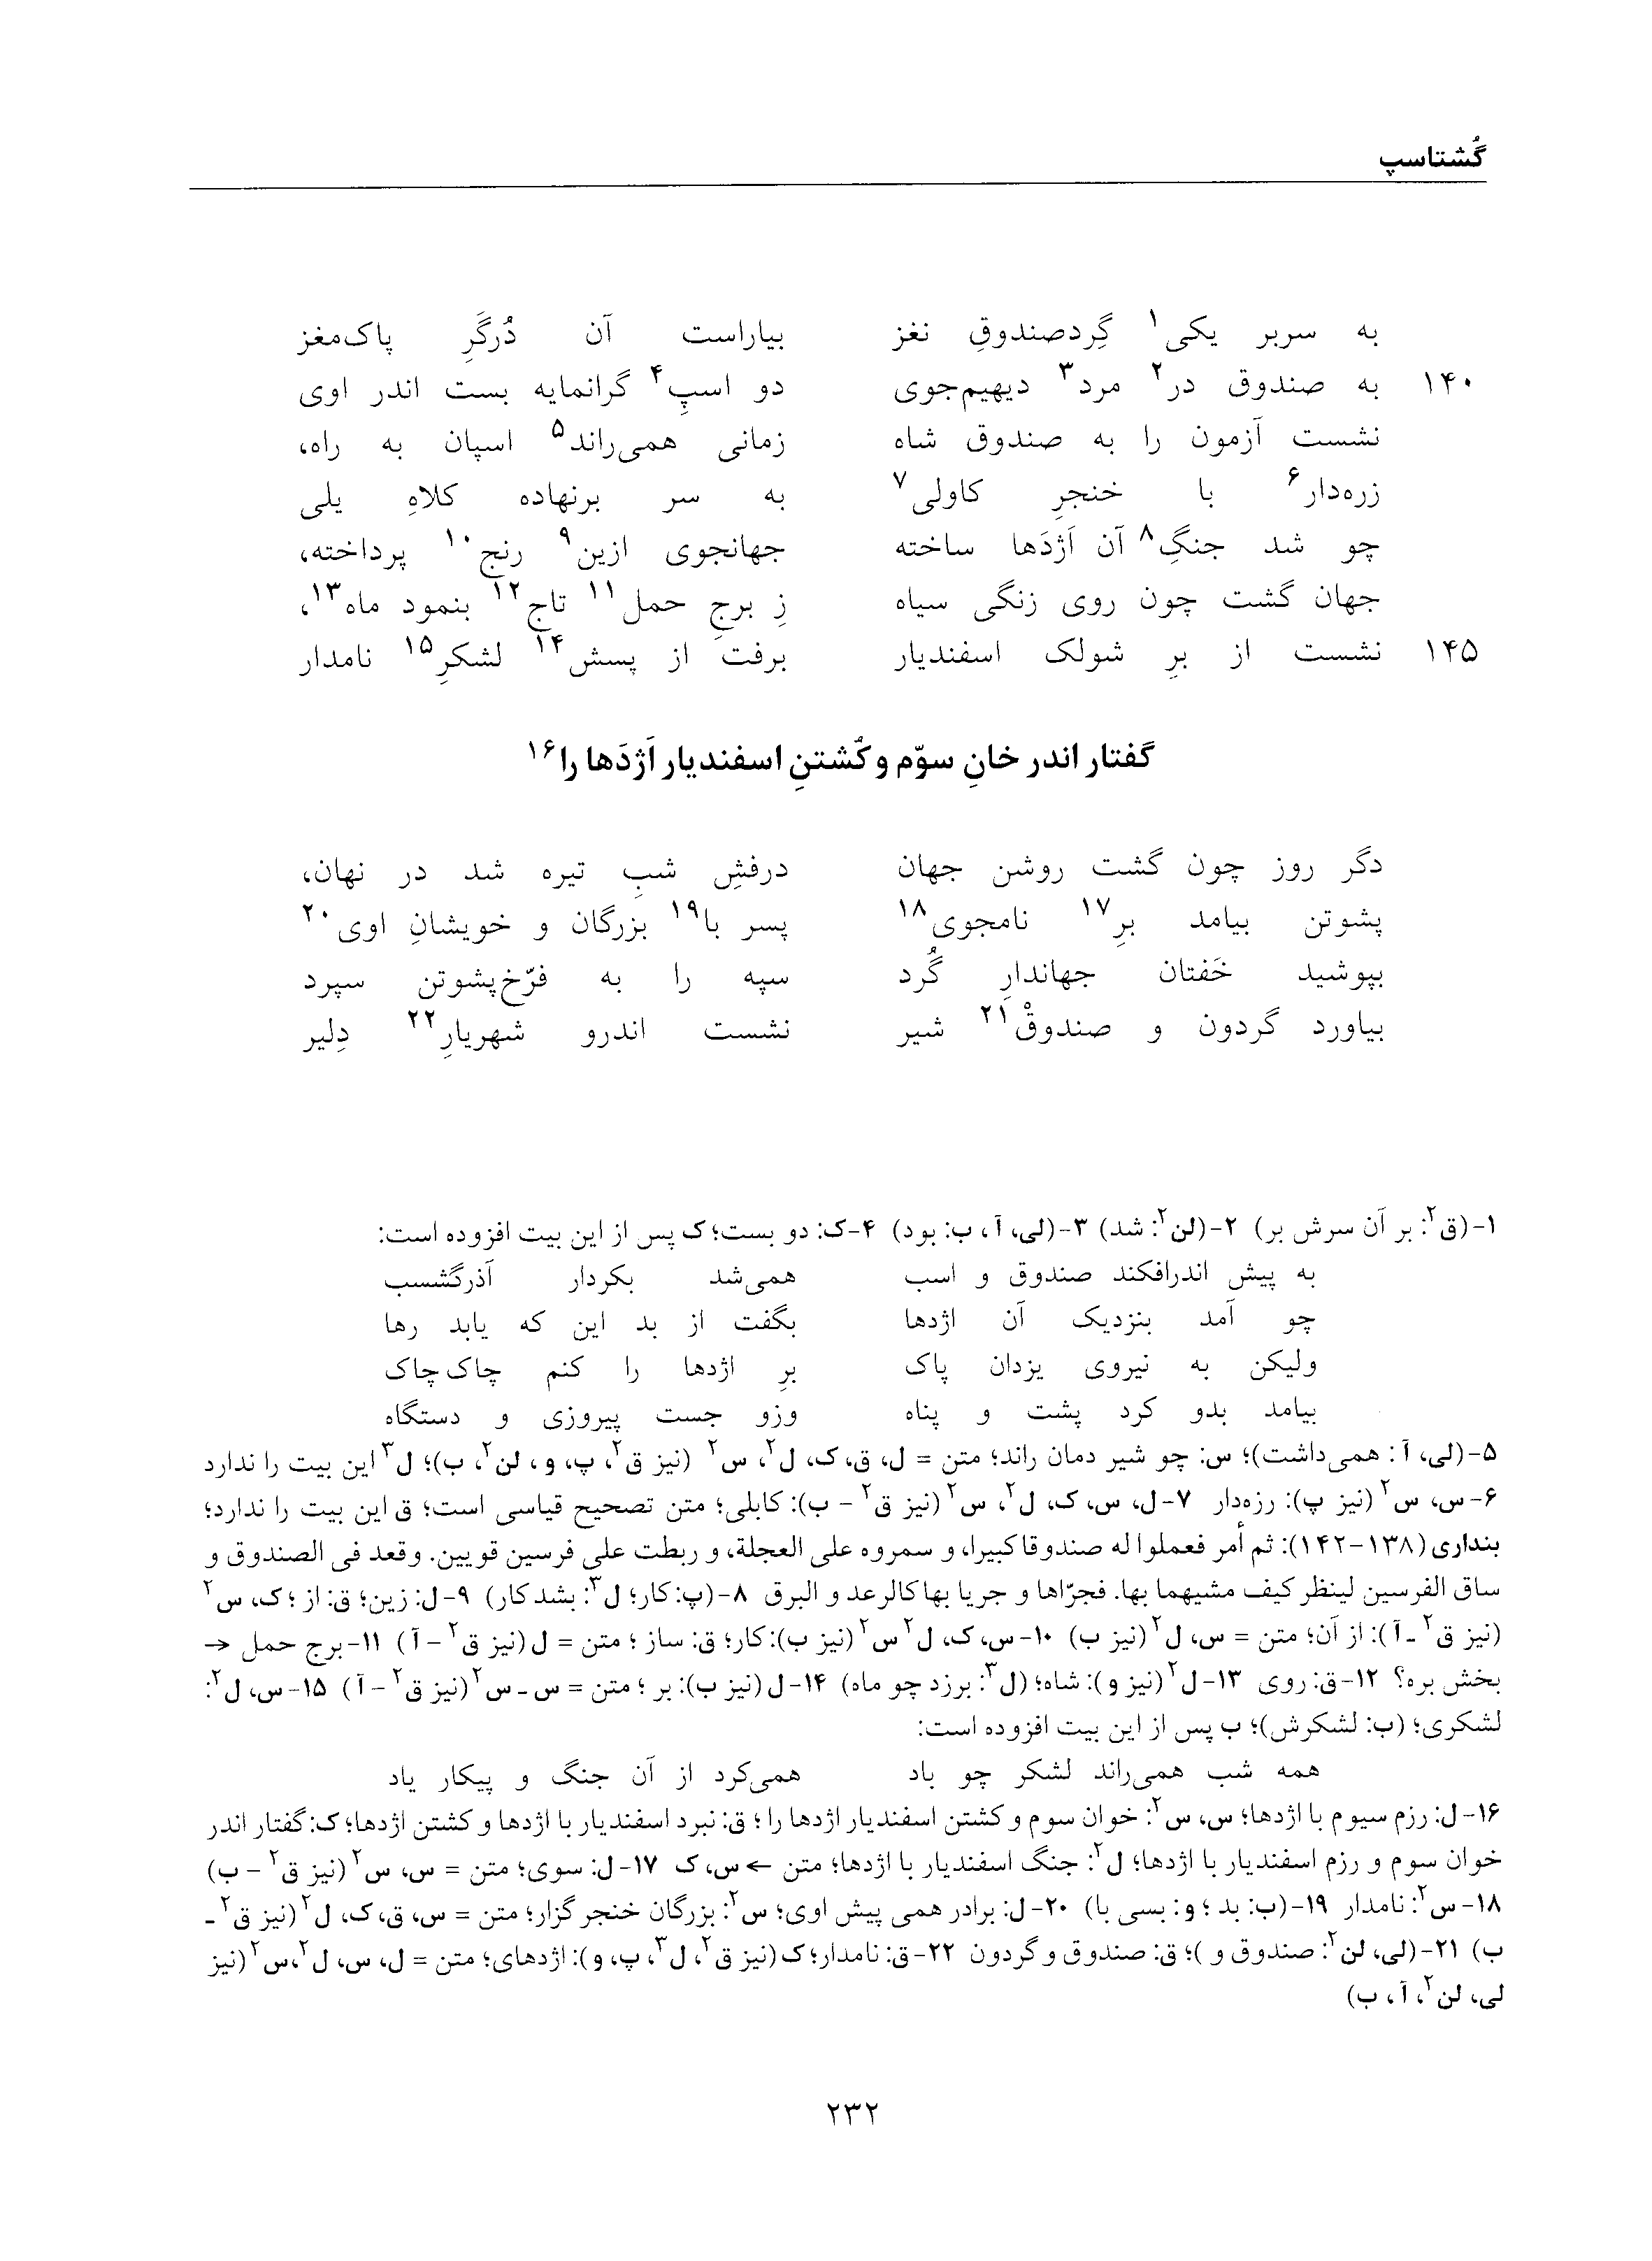 گُشتاسپ
به سربر یکی۱ گِردصندوقِ نغز بیاراست آن دُرگَرِ پاک‌مغز
۱۴۰ به صندوق در۲ مرد۳ دیهیم‌جوی دو اسپِ۴ گرانمایه بست اندر اوی
نشست آزمون را به صندوق شاه زمانی همی‌راند۵ اسپان به راه،
زره‌دار۶ با خنجرِ کاولی۷ به سر برنهاده کلاهِ یلی
چو شد جنگِ۸ آن اَژدَها ساخته جهانجوی ازین۹ رنج۱۰ پرداخته،
جهان گشت چون روی زنگی سیاه زِ برجِ حمل۱۱ تاج۱۲ بنمود ماه۱۳،
۱۴۵ نشست از برِ شولک اسفندیار برفت از پسش۱۴ لشکرِ۱۵ نامدار
گفتار اندر خانِ سوّم و کُشتنِ اسفندیار اَژدَها را۱۶
دگر روز چون گشت روشن جهان درفشِ شبِ تیره شد در نهان،
پشوتن بیامد برِ۱۷ نامجوی۱۸ پسر با۱۹ بزرگان و خویشانِ اوی۲۰
بپوشید خَفتان جهاندارِ گُرد سپه را به فرّخ‌پشوتن سپرد
بیاورد گردون و صندوقْ۲۱ شیر نشست اندرو شهریارِ۲۲ دِلیر
۱-(ق۲: بر آن سرش بر) ۲-(لن۲: شد) ۳-(لی، آ، ب: بود) ۴-ک: دو بست؛ ک پس از این بیت افزوده است:
به پیش اندرافکند صندوق و اسب همی‌شد بکردار آذرگشسب
چو آمد بنزدیک آن اژدها بگفت از بد این که یابد رها
ولیکن به نیروی یزدان پاک برِ اژدها را کنم چاک‌چاک
بیامد بدو کرد پشت و پناه وزو جست پیروزی و دستگاه
۵-(لی، آ: همی‌داشت)؛ س: چو شیر دمان راند؛ متن = ل، ق، ک، ل۲، س۲ (نیز ق۲، پ، و، لن۲، ب)؛ ل۳ این بیت را ندارد
۶-س، س۲ (نیز پ): رزه‌دار ۷-ل، س، ک، ل۲، س۲ (نیز ق۲ - ب): کابلی؛ متن تصحیح قیاسی است؛ ق این بیت را ندارد؛
بنداری (۱۳۸-۱۴۲): ثم أمر فعملوا له صندوقا کبیرا، و سمروه علی العجلة، و ربطت علی فرسین قویین. وقعد فی الصندوق و
ساق الفرسین لینظر کیف مشیهما بها. فجرّاها و جریا بها کالرعد و البرق ۸-(پ: کار؛ ل۳: بشد کار) ۹-ل: زین؛ ق: از؛ ک، س۲
(نیز ق۲ ـ آ): از آن؛ متن = س، ل۲ (نیز ب) ۱۰-س، ک، ل۲ س۲ (نیز ب): کار؛ ق: ساز؛ متن = ل (نیز ق۲ - آ) ۱۱-برج حمل →
بخش بره؟ ۱۲-ق: روی ۱۳-ل۲ (نیز و): شاه؛ (ل۳: برزد چو ماه) ۱۴-ل (نیز ب): بر؛ متن = س ـ س۲ (نیز ق۲ - آ) ۱۵-س، ل۲:
لشکری؛ (ب: لشکرش)؛ ب پس از این بیت افزوده است:
همه شب همی‌راند لشکر چو باد همی‌کرد از آن جنگ و پیکار یاد
۱۶-ل: رزم سیوم با اژدها؛ س، س۲: خوان سوم و کشتن اسفندیار اژدها را؛ ق: نبرد اسفندیار با اژدها و کشتن اژدها؛ ک: گفتار اندر
خوان سوم و رزم اسفندیار با اژدها؛ ل۲: جنگ اسفندیار با اژدها؛ متن ← س، ک ۱۷-ل: سوی؛ متن = س، س۲ (نیز ق۲ - ب)
۱۸-س۲: نامدار ۱۹-(ب: بد؛ و: بسی با) ۲۰-ل: برادر همی پیش اوی؛ س۲: بزرگان خنجر گزار؛ متن = س، ق، ک، ل۲ (نیز ق۲ ـ
ب) ۲۱-(لی، لن۲: صندوق و)؛ ق: صندوق و گردون ۲۲-ق: نامدار؛ ک (نیز ق۲، ل۳، پ، و): اژدهای؛ متن = ل، س، ل۲، س۲ (نیز
لی، لن۲، آ، ب)
۲۳۲